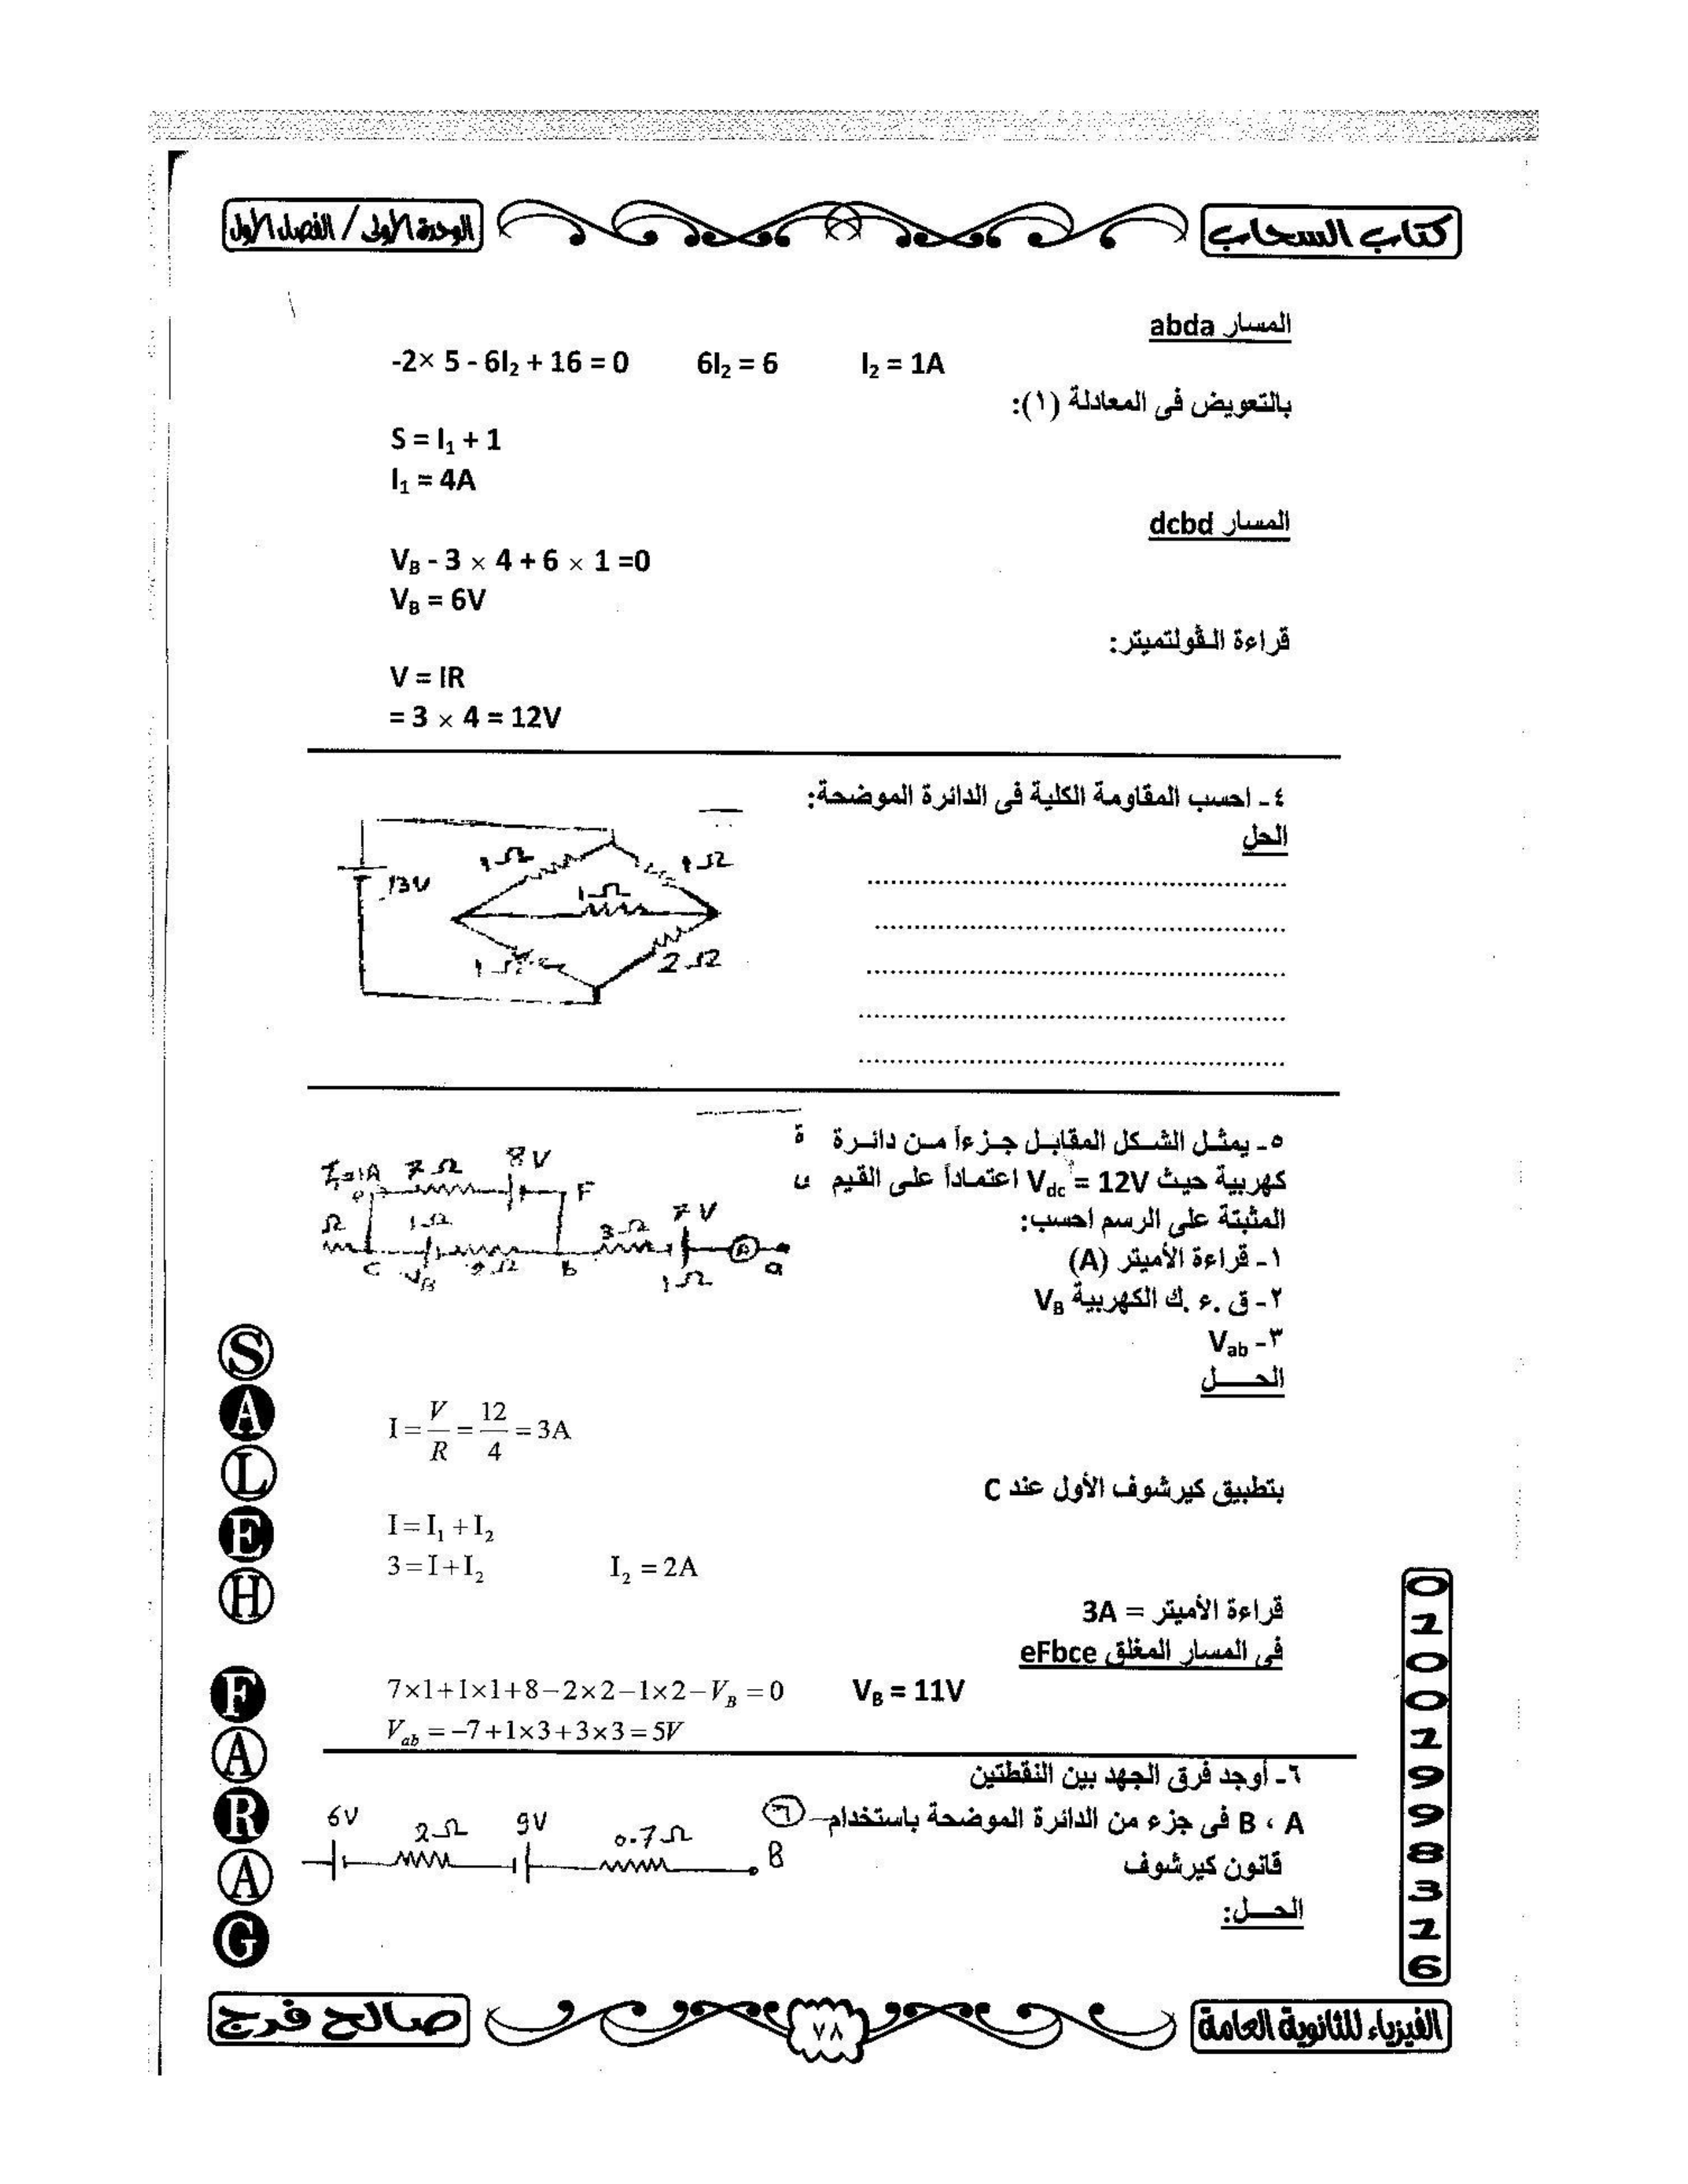 كتاب السحاب
الوحدة الأولى / الفصل الأول
المسار abda
-2× 5 - 6I₂ + 16 = 0 6I₂ = 6 I₂ = 1A
بالتعويض فى المعادلة (١):
S = I₁ + 1
I₁ = 4A
المسار dcbd
V_B - 3 × 4 + 6 × 1 =0
V_B = 6V
قراءة الڤولتميتر:
V = IR
= 3 × 4 = 12V
٤- احسب المقاومة الكلية فى الدائرة الموضحة:
الحل
13V
1Ω
1Ω
1Ω
1Ω
2Ω
٥- يمثل الشكل المقابل جزءاً من دائرة
كهربية حيث V_dc = 12V اعتماداً على القيم
المثبتة على الرسم احسب:
١- قراءة الأميتر (A)
٢- ق .ء .ك الكهربية V_B
٣- V_ab
الحـــل
I₁=1A 7Ω 8V
F
Ω 1Ω 3Ω 7V
A
C V_B Ω b 1Ω a
I = V/R = 12/4 = 3A
بتطبيق كيرشوف الأول عند C
I = I₁ + I₂
3 = I + I₂ I₂ = 2A
قراءة الأميتر = 3A
فى المسار المغلق eFbce
7×1+1×1+8−2×2−1×2−V_B = 0 V_B = 11V
V_ab = −7+1×3+3×3 = 5V
٦- أوجد فرق الجهد بين النقطتين
A ، B فى جزء من الدائرة الموضحة باستخدام
قانون كيرشوف
الحـــل:
٦
6V 2Ω 9V 0.7Ω B
SALEH FARAG
01001998316
الفيزياء للثانوية العامة
٧٨
صالح فرج